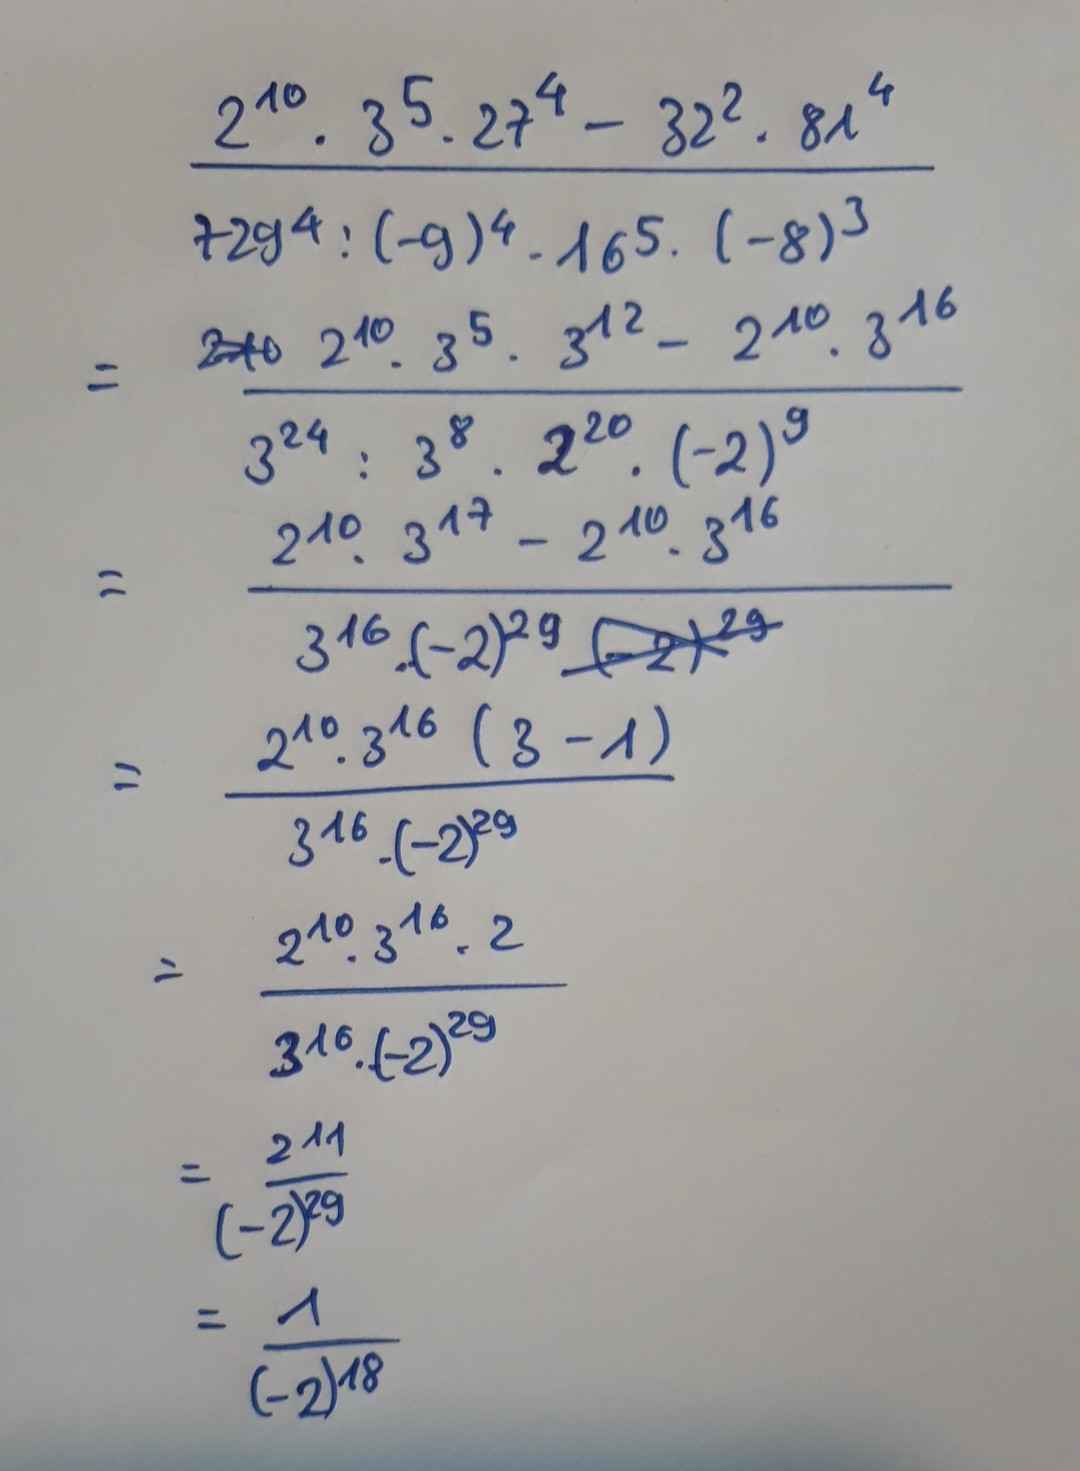 2¹⁰ . 3⁵ . 27⁴ − 32² . 81⁴
729⁴ : (-9)⁴ . 16⁵ . (-8)³
= 2¹⁰ . 3⁵ . 3¹² − 2¹⁰ . 3¹⁶
3²⁴ : 3⁸ . 2²⁰ . (-2)⁹
= 2¹⁰ . 3¹⁷ − 2¹⁰ . 3¹⁶
3¹⁶ . (-2)²⁹ (-2)²⁹
= 2¹⁰ . 3¹⁶ (3 − 1)
3¹⁶ . (-2)²⁹
= 2¹⁰ . 3¹⁶ . 2
3¹⁶ . (-2)²⁹
= 2¹¹
(-2)²⁹
= 1
(-2)¹⁸